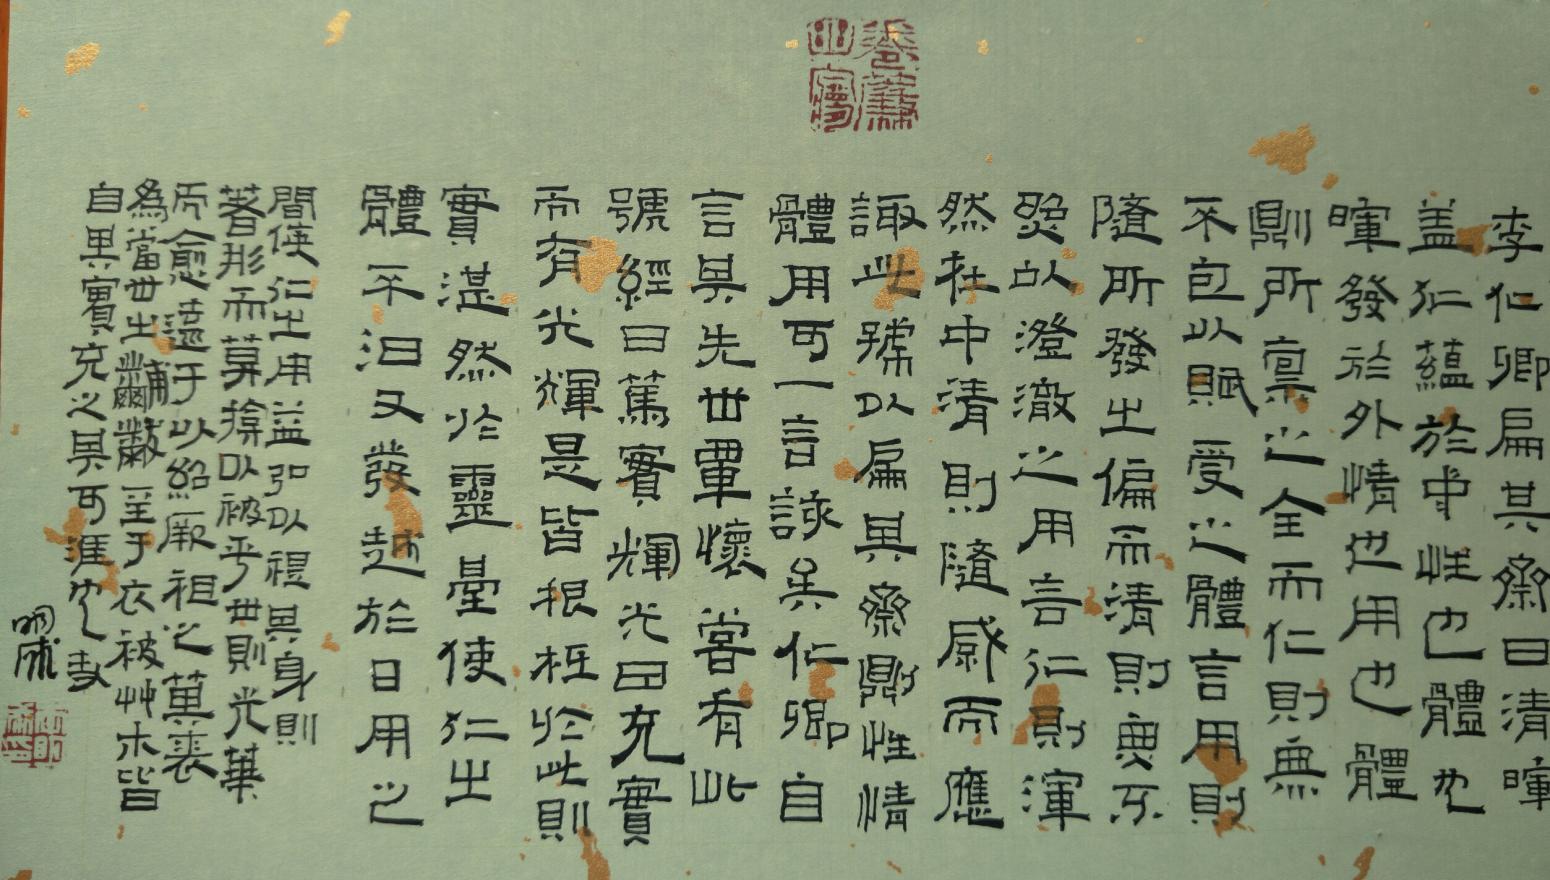 李仁卿扁其齋曰清暉
盖仁蘊於中性也體也
暉發於外情也用也體
則所禀之全而仁則無
不包以賦受之體言用則
隨所發之偏而清則無不
以澄澈之用言仁則渾
然在中清則隨感而應
諏此號以扁其齋則性情
體用可一言該矣仁卿自
言其先世覃懷嘗有此
號經曰篤實輝光曰充實
而有光輝是皆根柢於此則
實湛然於靈臺使仁之
體平汩又發越於日用之
間俟仁之用益弘以禮其身則
著形而莫揜以被乎世則光華
而愈遠于以紹厥祖之萬裘
為當世之黼黻至于衣被艸木皆
自其實充之其可涯也